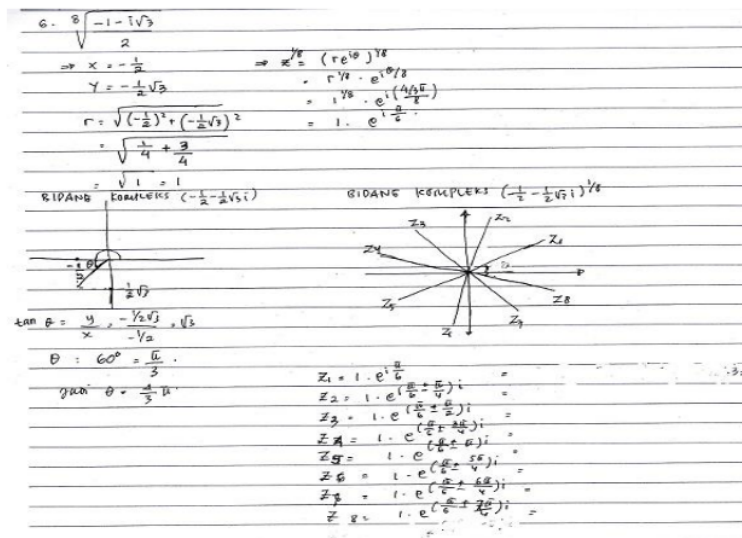 6. ⁸√((-1-i√3)/2)
⇒ x = -1/2
y = -1/2√3
r = √((-1/2)² + (-1/2√3)²)
= √(1/4 + 3/4)
= √1 = 1
⇒ z^(1/8) = (re^(iθ))^(1/8)
= r^(1/8) . e^(iθ/8)
= 1^(1/8) . e^(i(4/3π/8))
= 1 . e^(iπ/6)
BIDANG KOMPLEKS (-1/2-1/2√3i)
-1/2 θ
-1/2√3
tan θ = y/x = (-1/2√3)/(-1/2) = √3
θ = 60° = π/3.
jadi θ = 4/3 π.
BIDANG KOMPLEKS (-1/2-1/2√3i)^(1/8)
Z3 Z2
Z4 Z1
Z5 Z8
Z7
Z1 = 1. e^(iπ/6) =
Z2 = 1. e^((π/6 ± π/4)i) =
Z3 = 1. e^((π/6 ± π/2)i) =
Z4 = 1. e^((π/6 ± 3π/4)i) =
Z5 = 1. e^((π/6 ± π)i) =
Z6 = 1. e^((π/6 ± 5π/4)i) =
Z7 = 1. e^((π/6 ± 6π/4)i) =
Z8 = 1. e^((π/6 ± 7π/4)i) =